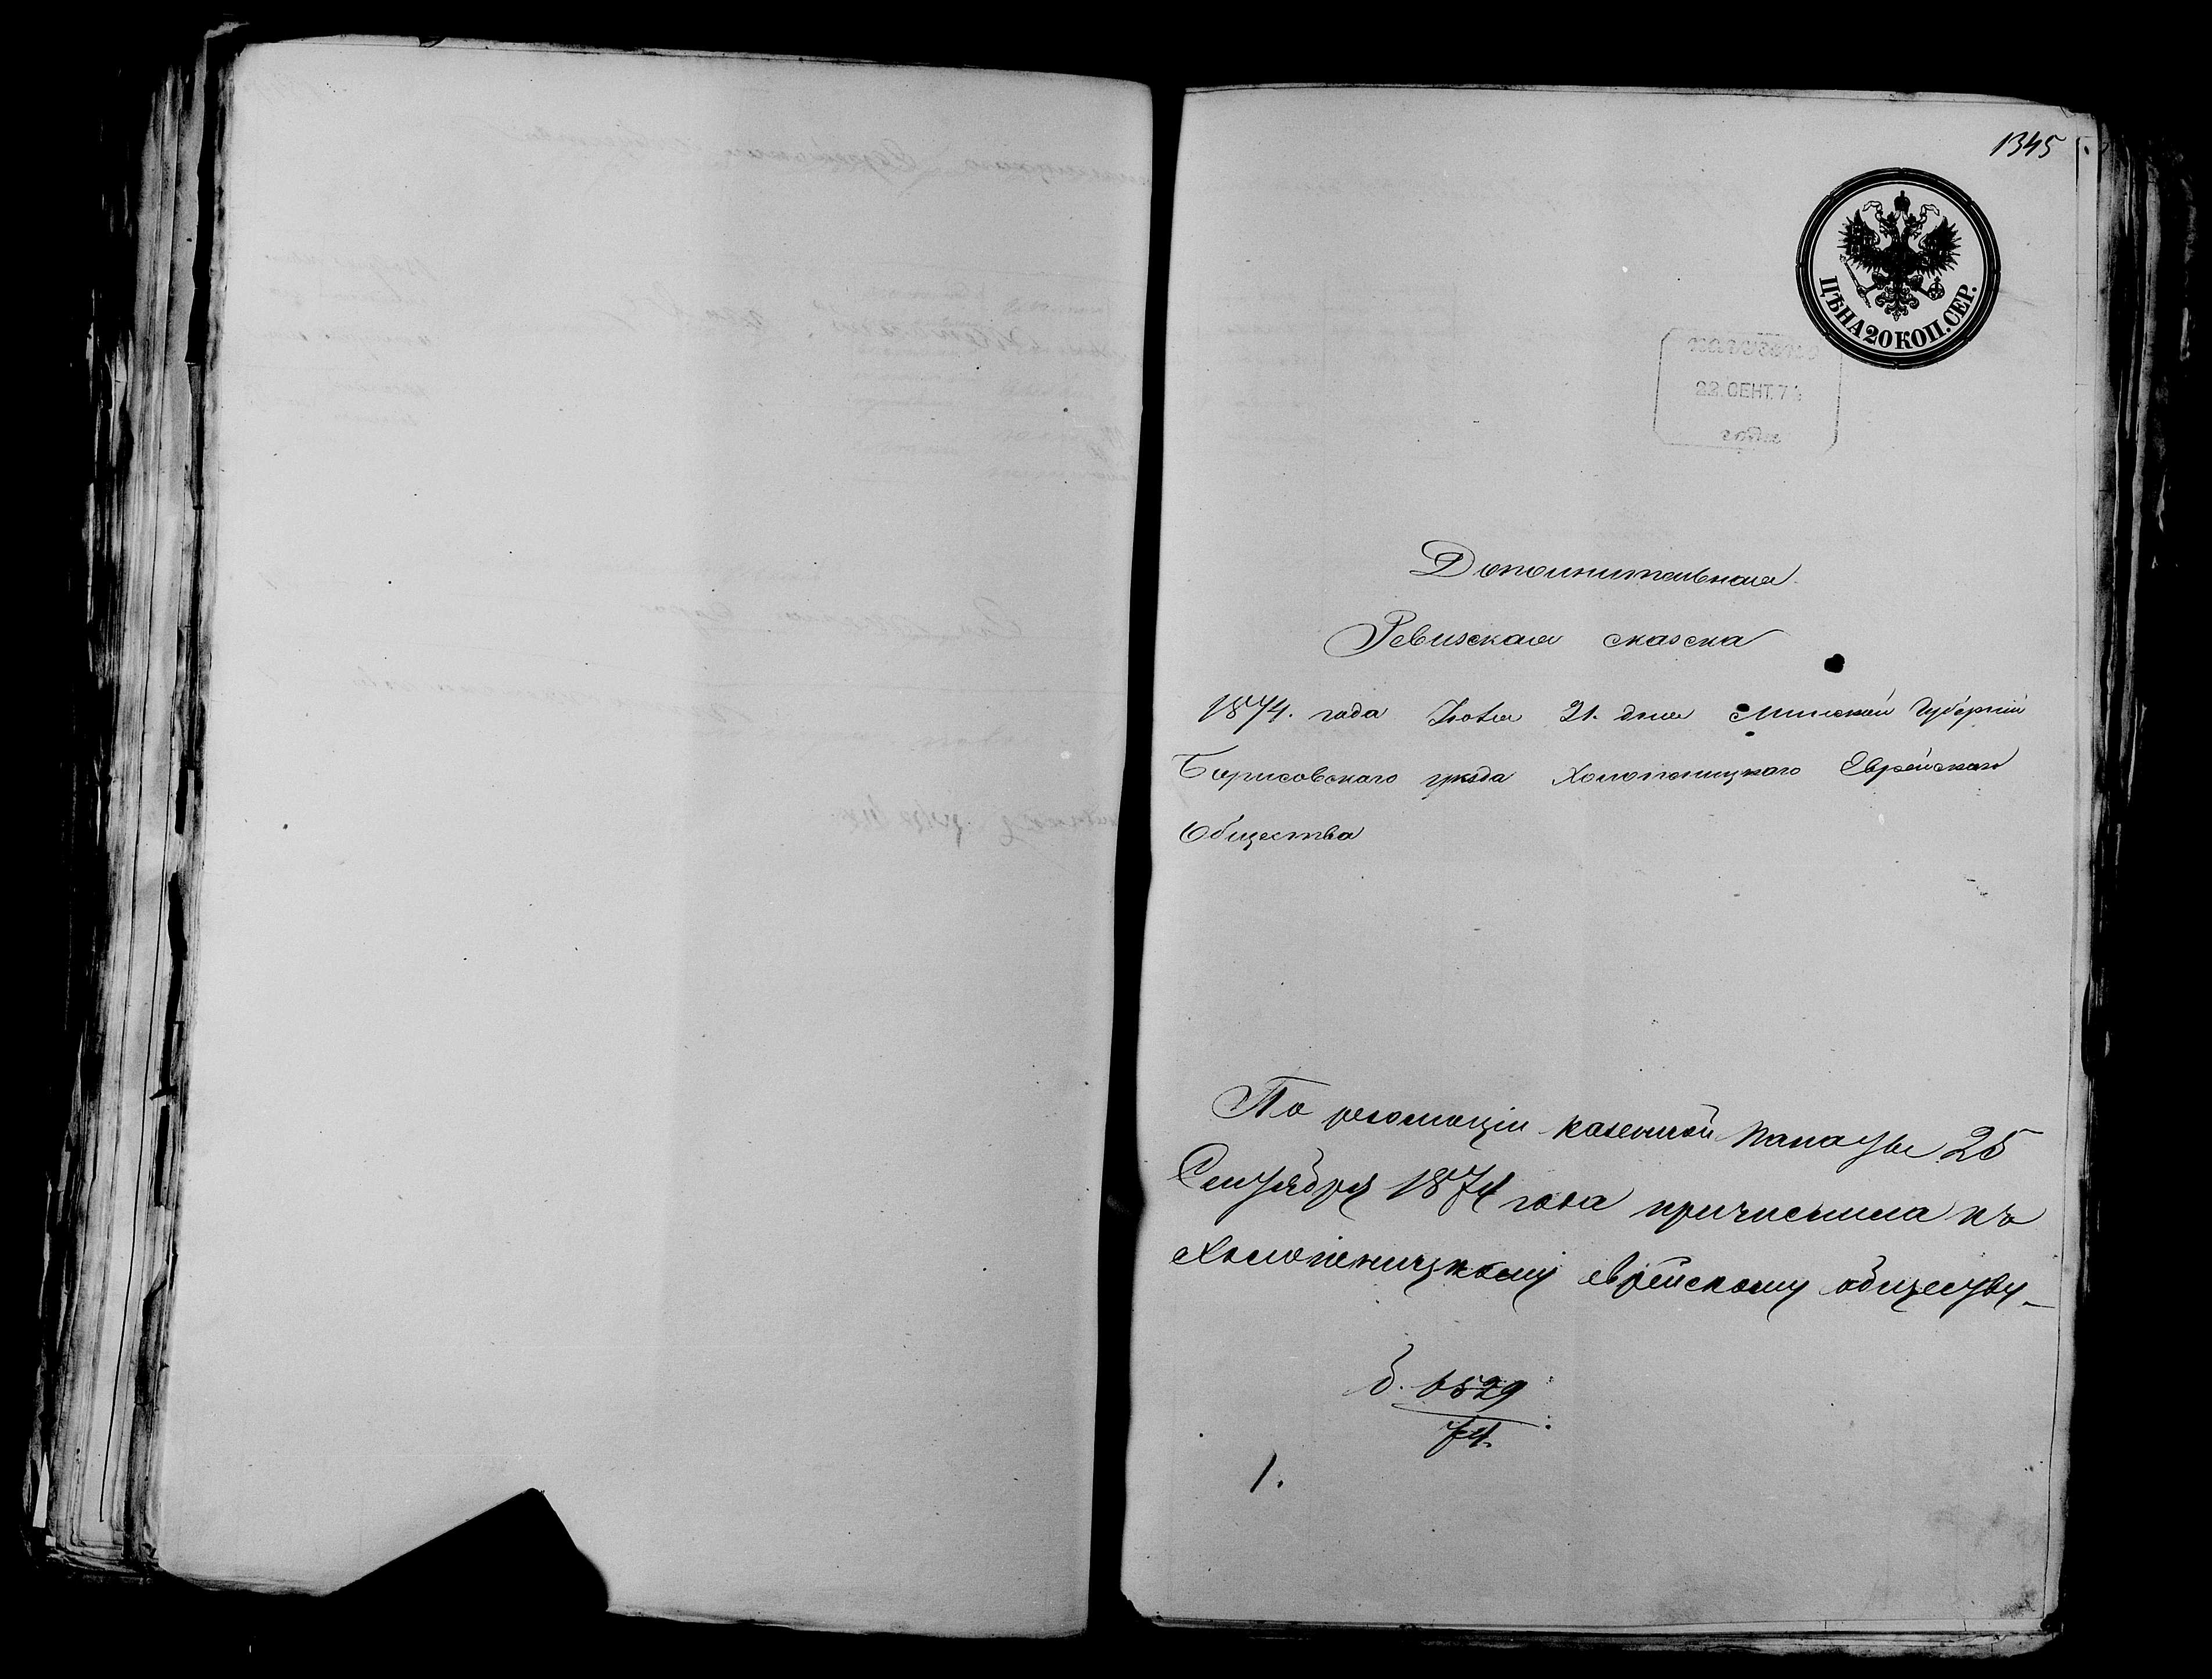 1345
ЦѢНА 20 КОП. СЕР.
22 СЕНТ. 74
года
Дополнительная
Ревизская сказка
1874. года Іюля 21. дня Минской Губерніи
Борисовскаго уѣзда Холопеницкаго Еврейскаго
Общества
По резолюціи казенной палаты 25
Сентября 1874 года причислена къ
Холопеническому еврейскому обществу
д. 6529
74.
1.